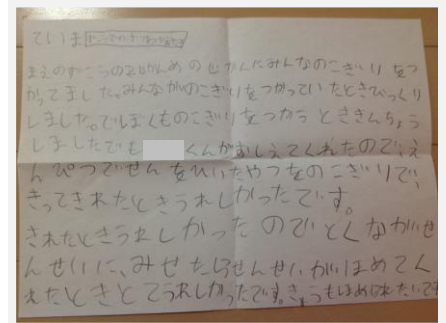 ていま
まえのずこうの2じかんめのじかんにみんなのこぎりをつ
かってました。みんながのこぎりをつかっていたときびっくり
しました。でぼくものこぎりをつかうとききんちょう
しましたでも くんがおしえてくれたので、え
んぴつでせんをひいたやつをのこぎりで、
きってきれたときうれしかったです。
きれたときうれしかったのでとくながせ
んせいに、みせたらせんせいがほめてく
れたときとてうれしかったです。きょうもほめられたいです